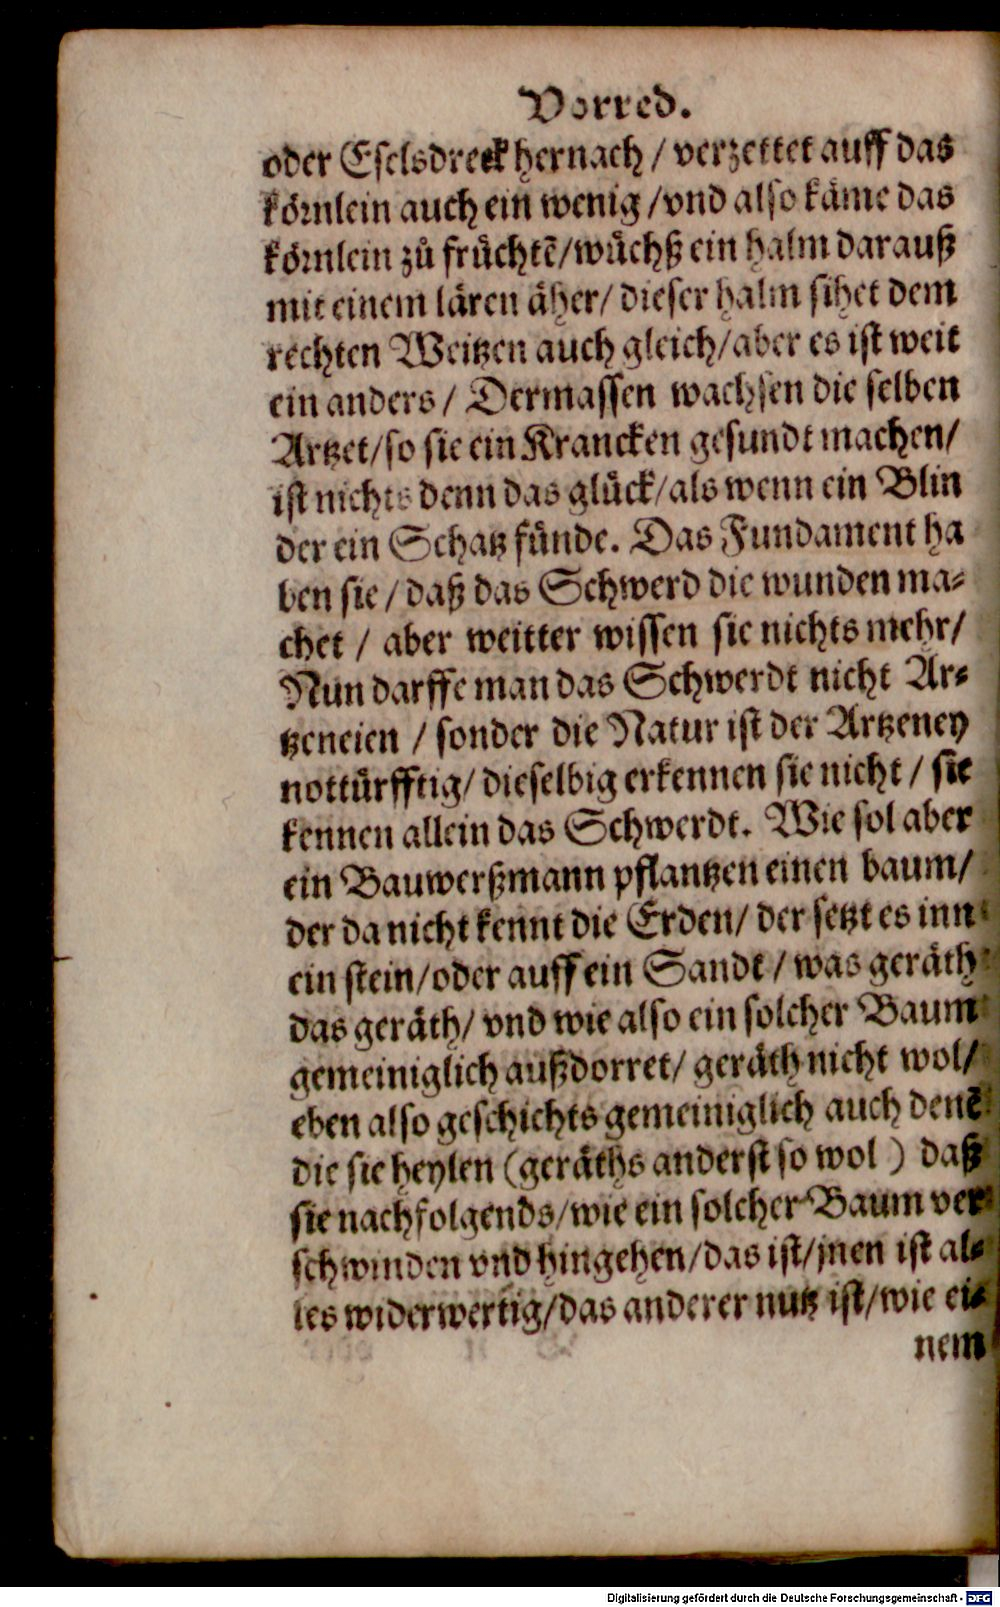 Vorred.
oder Eſelsdreck hernach / verzettet auff das
körnlein auch ein wenig / vnd alſo käme das
körnlein zů früchtē / wüchß ein halm darauß
mit einem lären äher / dieſer halm ſihet dem
rechten Weitzen auch gleich / aber es iſt weit
ein anders / Dermaſſen wachſen die ſelben
Artzet / ſo ſie ein Krancken geſundt machen /
iſt nichts denn das glück / als wenn ein Blin
der ein Schatz fünde. Das Fundament ha
ben ſie / daß das Schwerd die wunden ma⸗
chet / aber weitter wiſſen ſie nichts mehr /
Nun darffe man das Schwerdt nicht Ar⸗
tzeneien / ſonder die Natur iſt der Artzeney
nottürfftig / dieſelbig erkennen ſie nicht / ſie
kennen allein das Schwerdt. Wie ſol aber
ein Bauwerßmann pflantzen einen baum /
der da nicht kennt die Erden / der ſetzt es inn
ein ſtein / oder auff ein Sandt / was geräth
das geräth / vnd wie alſo ein ſolcher Baum
gemeiniglich außdorret / geräth nicht wol /
eben alſo geſchichts gemeiniglich auch denē
die ſie heylen (geräths anderſt ſo wol ) daß
ſie nachfolgends / wie ein ſolcher Baum ver
ſchwinden vnd hingehen / das iſt / jnen iſt al⸗
les widerwertig / das anderer nutz iſt / wie ei⸗
nem
Digitalisierung gefördert durch die Deutsche Forschungsgemeinschaft - DFG